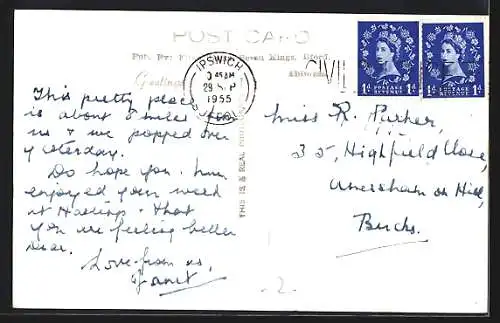 POST CARD
IPSWICH
9 45 AM
29 SEP
1955
SUFFOLK
Greetings
This pretty place
is about 8 miles from
us & we popped over
yesterday.
Do hope you have
enjoyed your week
at Hastings & that
you are feeling better
dear.
Love from us,
Janet
THIS IS A REAL PHOTO
1d POSTAGE REVENUE 1d
1d POSTAGE REVENUE 1d
Miss R. Parker,
35, Highfield Close,
Amersham on Hill,
Bucks.
2